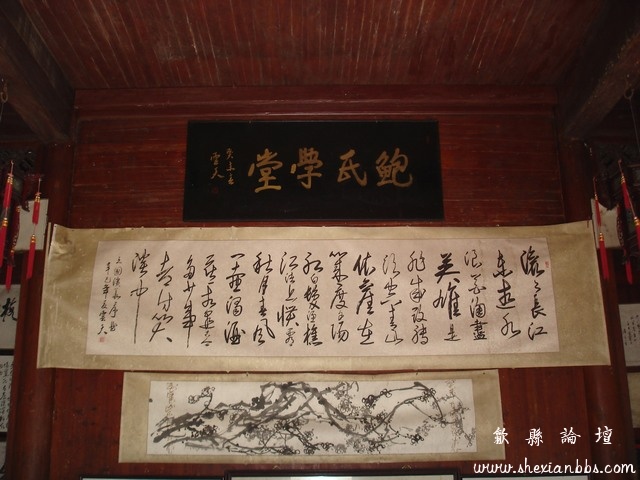 鮑氏學堂
雲天
滚〻長江
東逝水
浪花淘盡
英雄是
非成敗轉
頭空青山
依舊在
幾度夕陽
紅白髮漁樵
江渚上慣看
秋月春風
一壺濁酒
喜相逢古
今多少事
都付笑
談中
雲天
歙縣論壇
www.shexianbbs.com